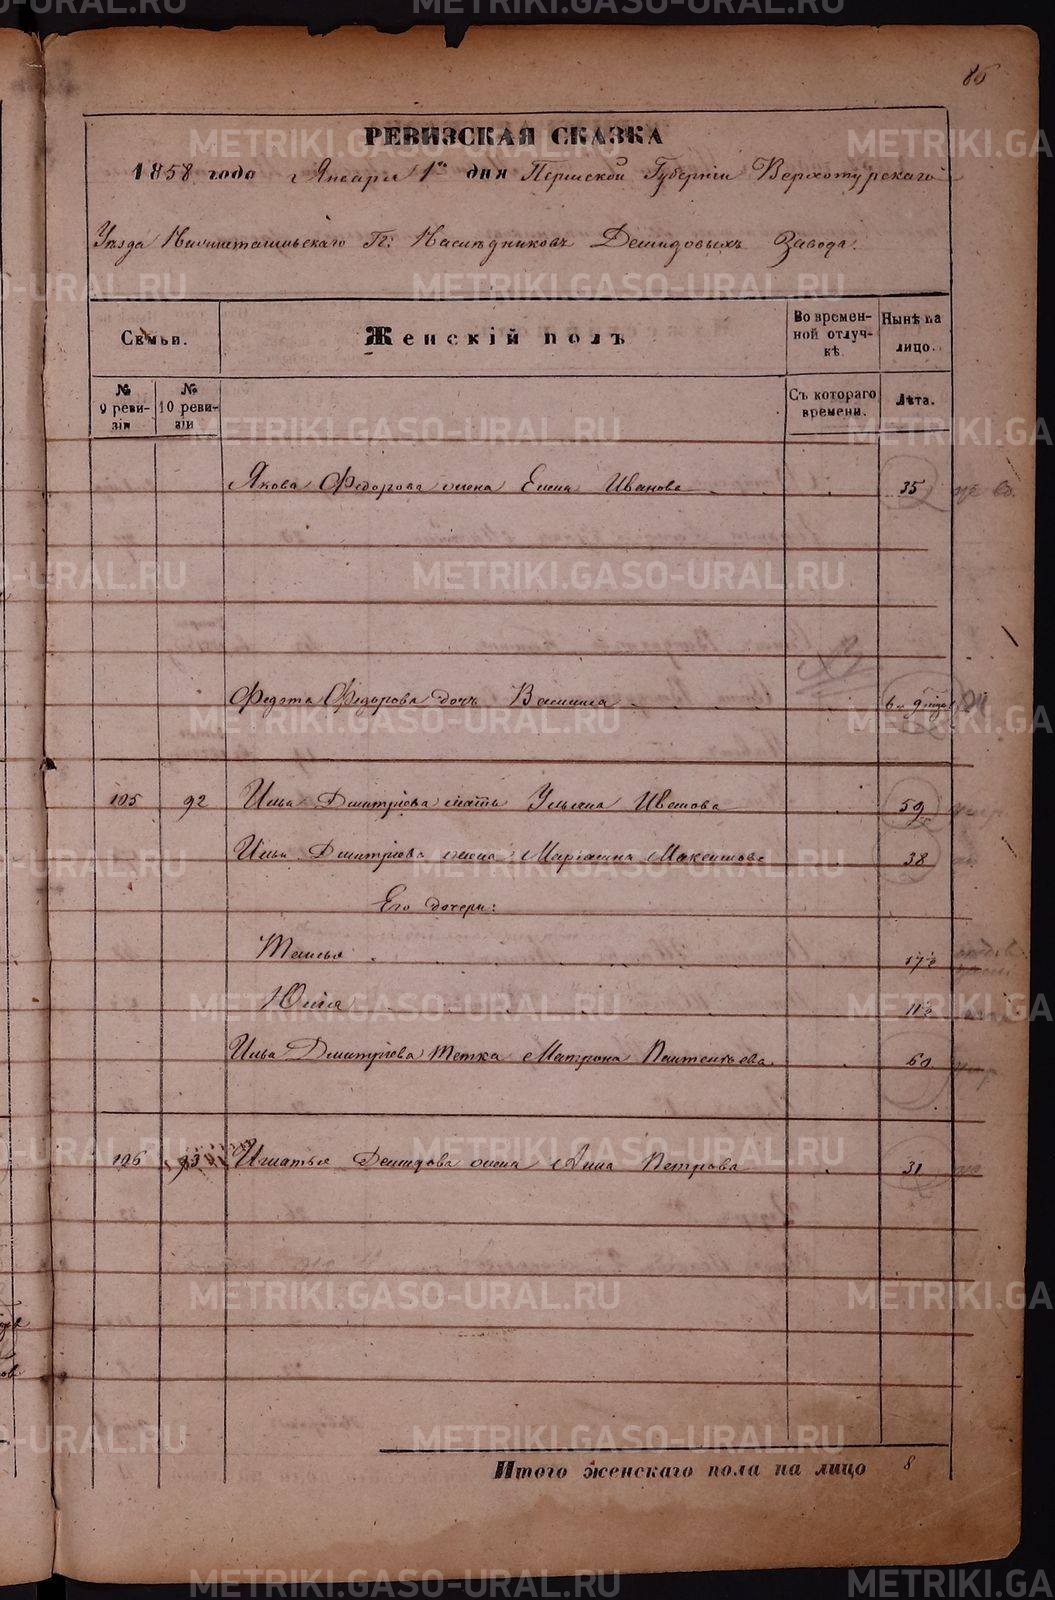 86
РЕВИЗСКАЯ СКАЗКА
1858 года Января 1го дня Пермской Губерніи Верхотурскаго
Уѣзда Нижнетагильскаго Гг: Наслѣдниковъ Демидовыхъ Завода.
Семьи. Женскій полъ Во временной отлучкѣ. Нынѣ на лицо.
№ 9 ревизіи № 10 ревизіи Съ котораго времени. Лѣта.
Якова Федорова жена Елена Иванова 35
Федота Федорова дочь 9
105 92 Ильи Дмитріева мать Ульяна Иванова 59
Ильи Дмитріева жена Маріанна Максимова 38
Его дочери:
17½
Юлія 11½
Ильи Дмитріева тетка Матрона Пантелѣева 60
106 93 Игнатья Демидова жена Анна Петрова 31
Итого женскаго пола на лицо 8
METRIKI.GASO-URAL.RU